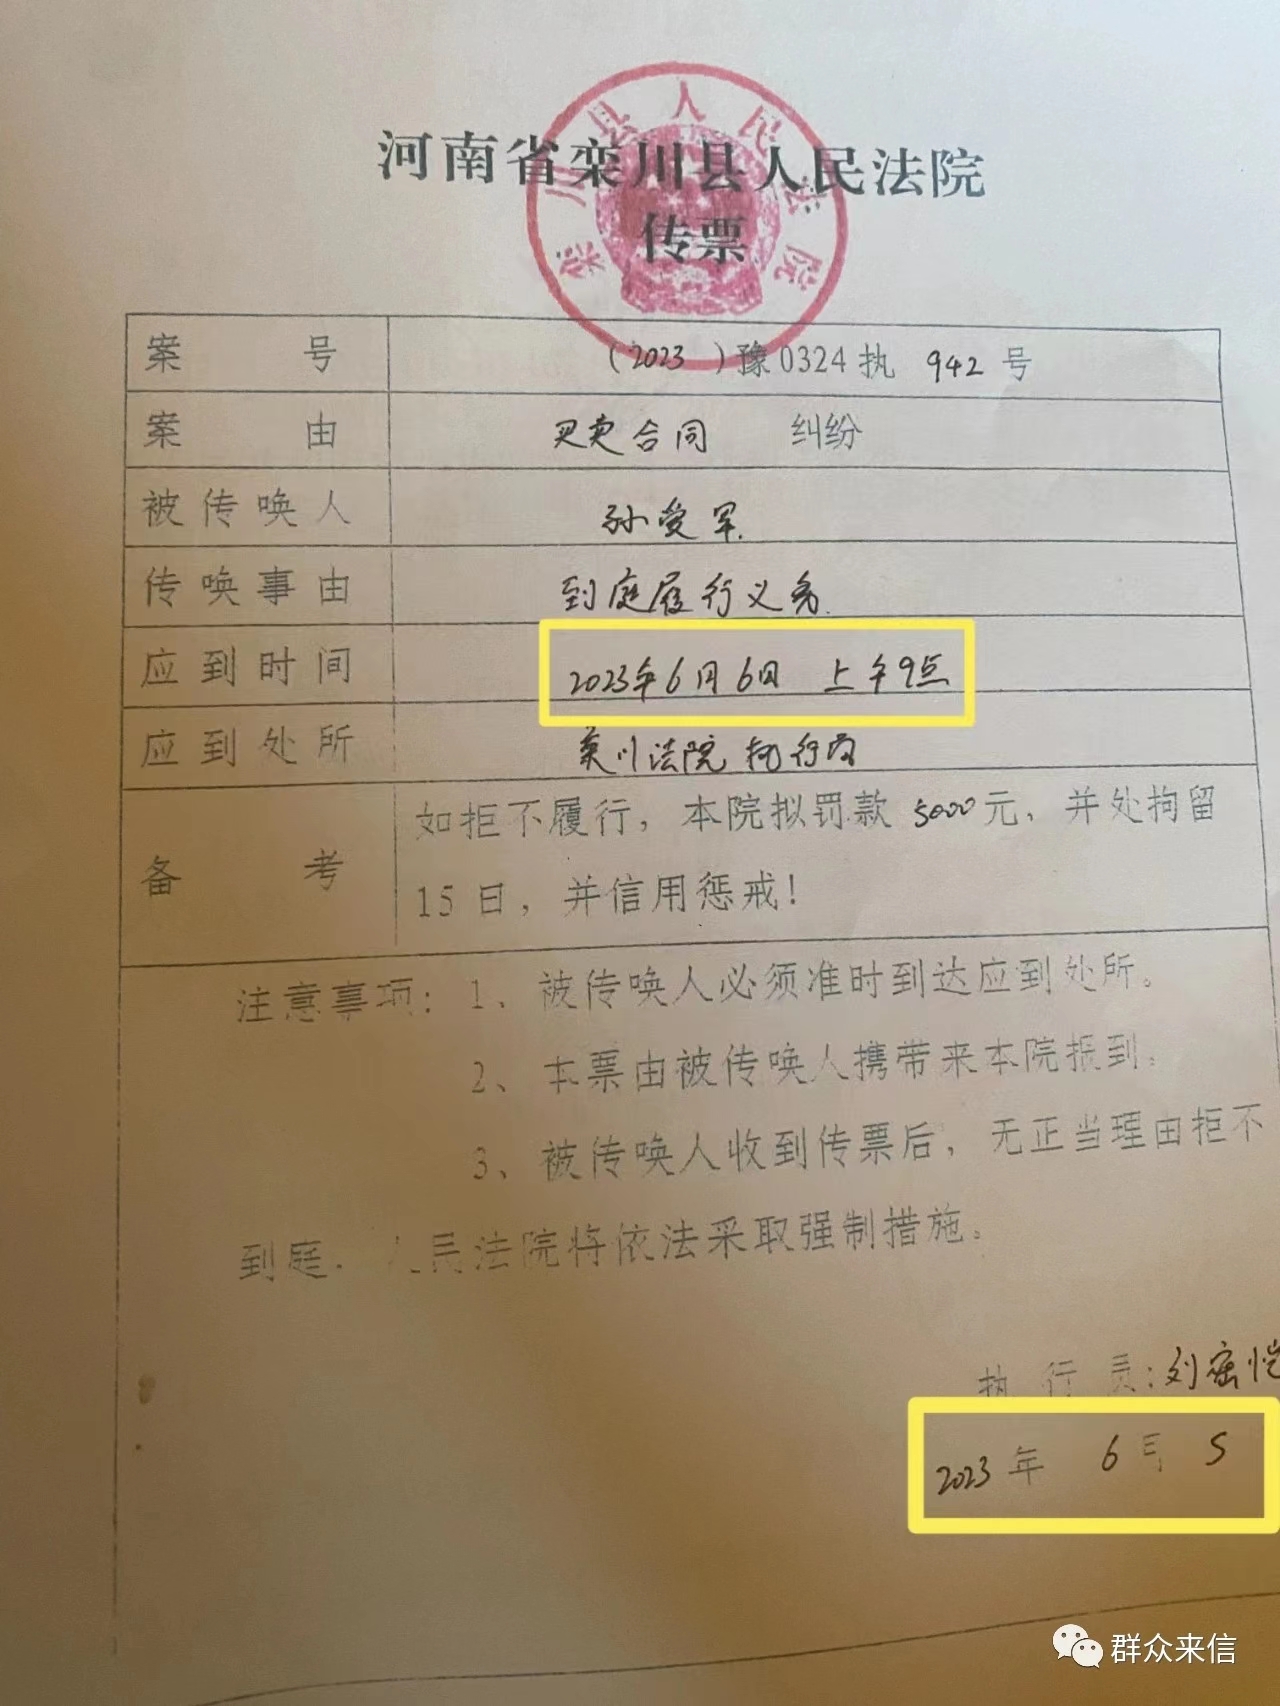 河南省栾川县人民法院
传票
栾川县人民法院
案号 (2023)豫0324执 942号
案由 买卖合同 纠纷
被传唤人 孙受军
传唤事由 到庭履行义务
应到时间 2023年6月6日 上午9点
应到处所 栾川法院执行局
备考 如拒不履行，本院拟罚款5000元，并处拘留
15日，并信用惩戒！
注意事项：1、被传唤人必须准时到达应到处所。
2、本票由被传唤人携带来本院报到。
3、被传唤人收到传票后，无正当理由拒不
到庭，人民法院将依法采取强制措施。
执行员：刘
2023年 6月 5
群众来信